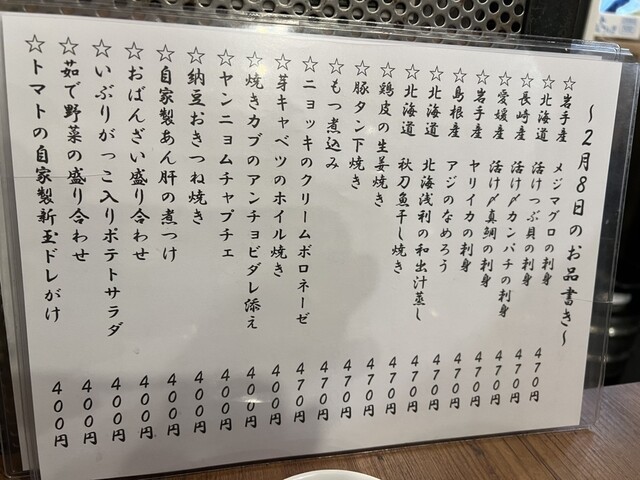 〜2月8日のお品書き〜
☆岩手産 メジマグロの刺身 470円
☆北海道 活けつぶ貝の刺身 470円
☆長崎産 活け〆カンパチの刺身 470円
☆愛媛産 活け〆真鯛の刺身 470円
☆岩手産 ヤリイカの刺身 470円
☆島根産 アジのなめろう 470円
☆北海道 北海浅利の和出汁蒸し 470円
☆北海道 秋刀魚干し焼き 470円
☆鶏皮の生姜焼き 470円
☆豚タン下焼き 470円
☆もつ煮込み 470円
☆ニョッキのクリームボロネーゼ 400円
☆芽キャベツのホイル焼き 400円
☆焼きカブのアンチョビダレ添え 400円
☆ヤンニョムチャプチェ 400円
☆納豆おきつね焼き 400円
☆自家製あん肝の煮つけ 400円
☆おばんざい盛り合わせ 400円
☆いぶりがっこ入りポテトサラダ 400円
☆茹で野菜の盛り合わせ 400円
☆トマトの自家製新玉ドレがけ 400円